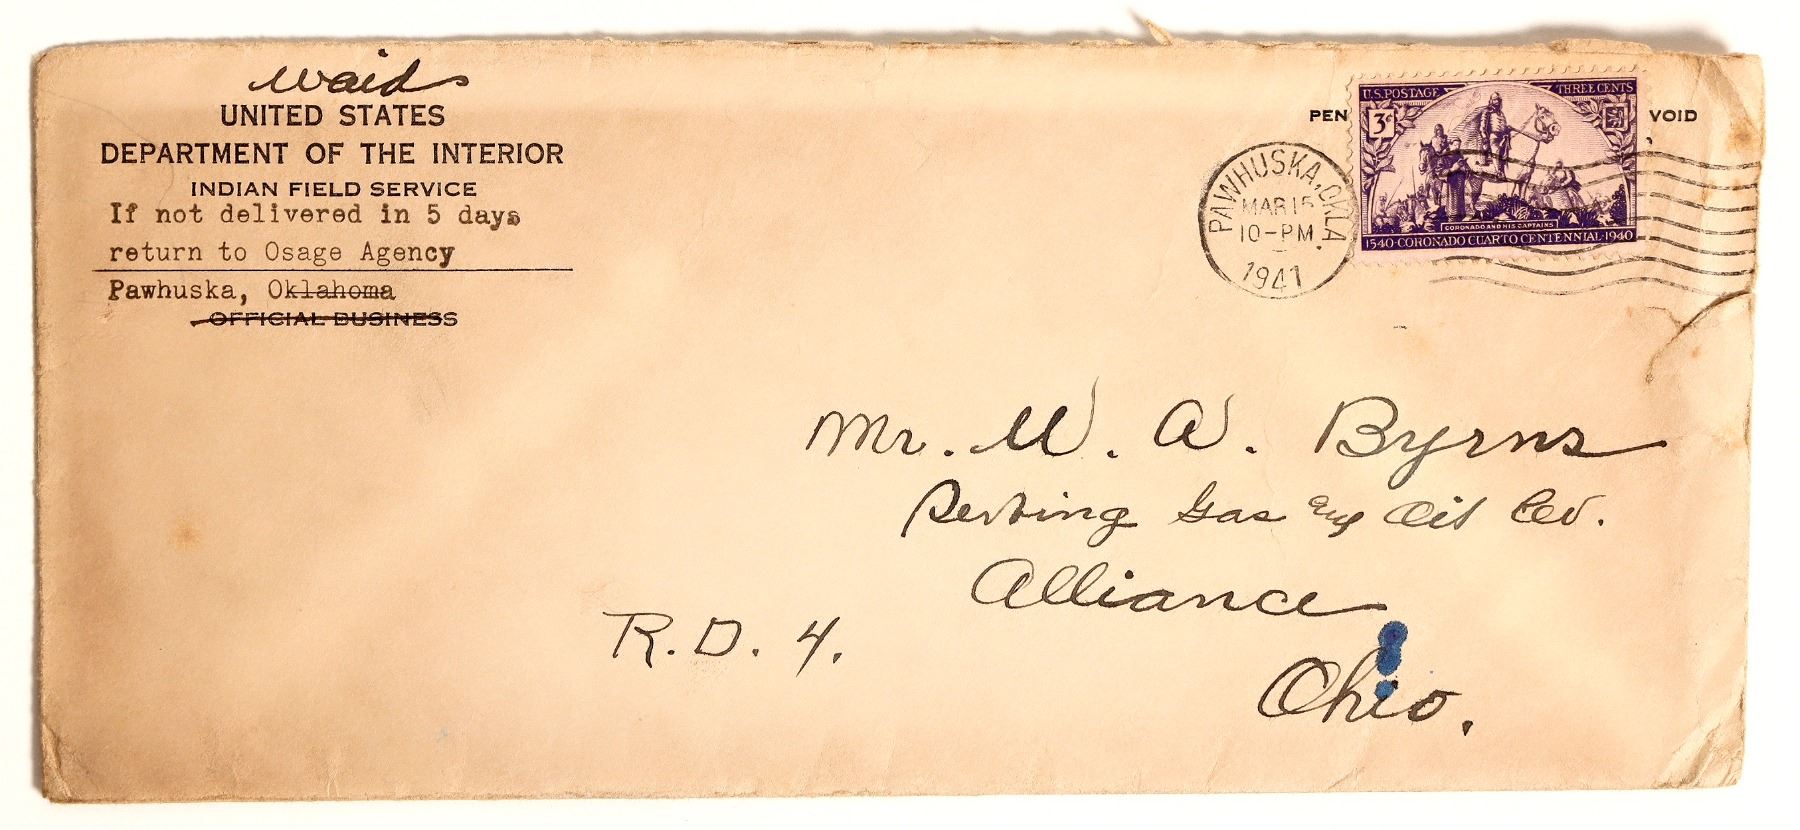 Waid
UNITED STATES
DEPARTMENT OF THE INTERIOR
INDIAN FIELD SERVICE
If not delivered in 5 days
return to Osage Agency
Pawhuska, Oklahoma
OFFICIAL BUSINESS
PEN VOID
U.S. POSTAGE THREE CENTS
3¢
CORONADO AND HIS CAPTAINS
1540·CORONADO CUARTO CENTENNIAL·1940
PAWHUSKA, OKLA.
MAR 15
10-PM
1941
Mr. W. A. Byrns
Gas Oil Co.
Alliance
R.D. 4.
Ohio.